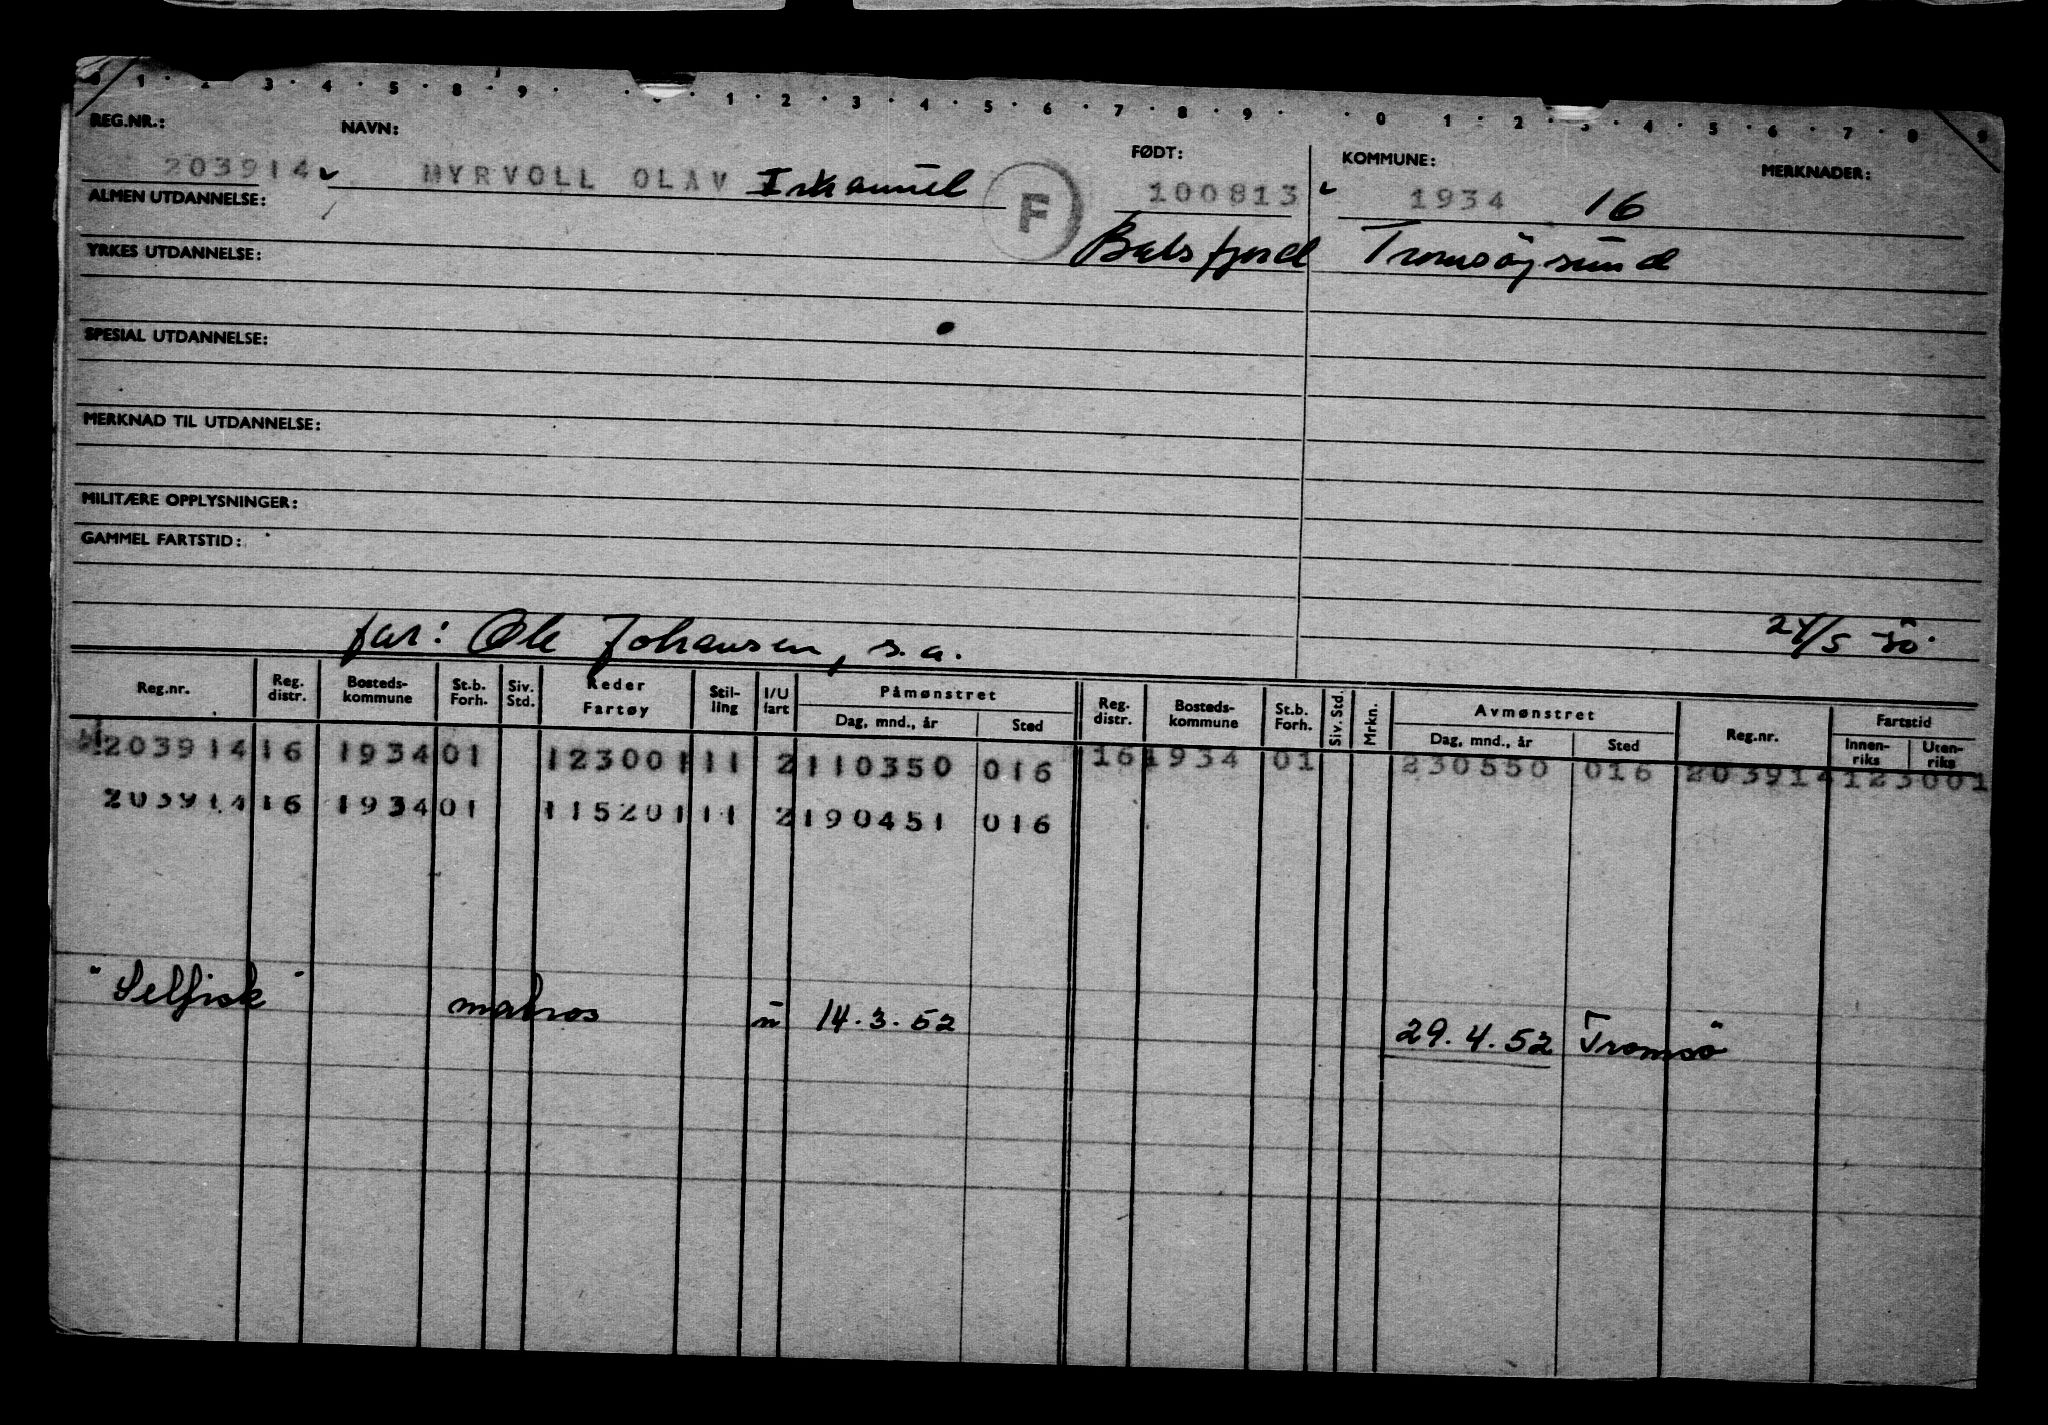 0 1 · 2 · 3 · 4 · 5 · 8 · 9 · · 0 · 1 · 2 · 3 · 4 · 5 · 6 · 7 · 8 · 9 · · 0 · 1 · 2 · 3 · 4 · 5 · 6 · 7 · 8 · 9
REG.NR.: NAVN: FØDT: KOMMUNE: MERKNADER:
203914 MYRVOLL OLAV F 100813 1934 16
ALMEN UTDANNELSE:
Balsfjord Tromsöysund
YRKES UTDANNELSE:
SPESIAL UTDANNELSE:
MERKNAD TIL UTDANNELSE:
MILITÆRE OPPLYSNINGER:
GAMMEL FARTSTID:
far: Ole Johansen, s.a. 24/5 50
Reg.nr. Reg. distr. Bosteds-kommune St.b. Forh. Siv. Std. Reder Fartøy Stil-ling I/U fart Påmønstret Dag, mnd., år Sted Reg. distr. Bosteds-kommune St.b. Forh. Siv. Std. Mrkn. Avmønstret Dag, mnd., år Sted Reg.nr. Fartstid Innen-riks Uten-riks
203914 16 1934 01 123001 11 2 110350 016 16 1934 01 230550 016 203914 123001
203914 16 1934 01 115201 11 2 190451 016
"Selfisk" matros u 14.3.52 29.4.52 Tromsö